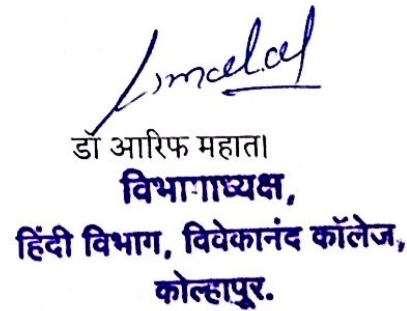 डॉ आरिफ महात।
विभागाध्यक्ष,
हिंदी विभाग, विवेकानंद कॉलेज,
कोल्हापुर.